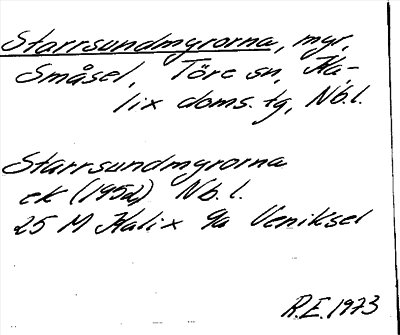 Starrsundmyrorna, myr,
Småsel, Töre sn, Ka-
lix doms. tg, Nb.l.
Starrsundmyrorna
ek (1952) Nb.l.
25 M Kalix 9a Veniksel
R.E. 1973